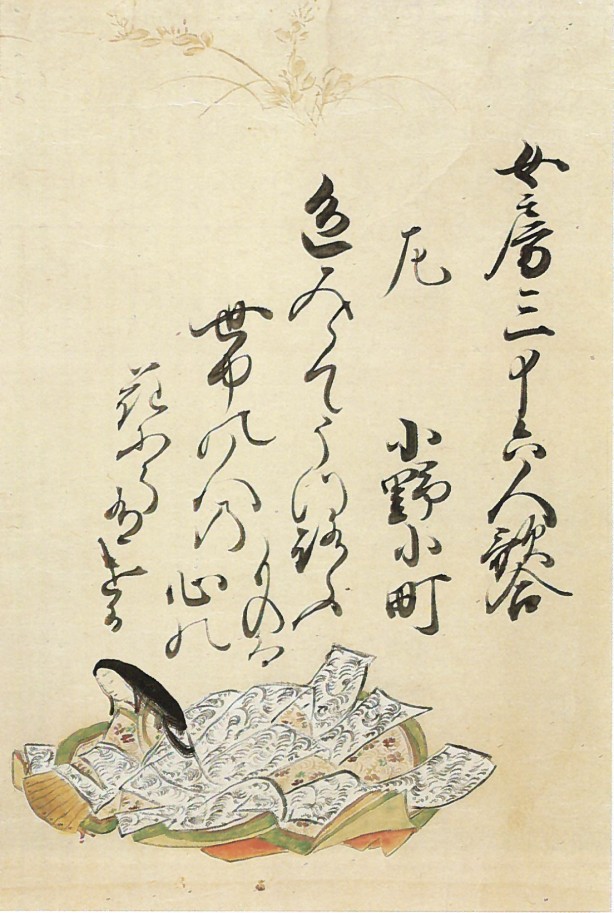 女房三十六人歌合
左　小野小町
色みえてうつろふ
ものは
世中の人の
心の
花にそ有ける